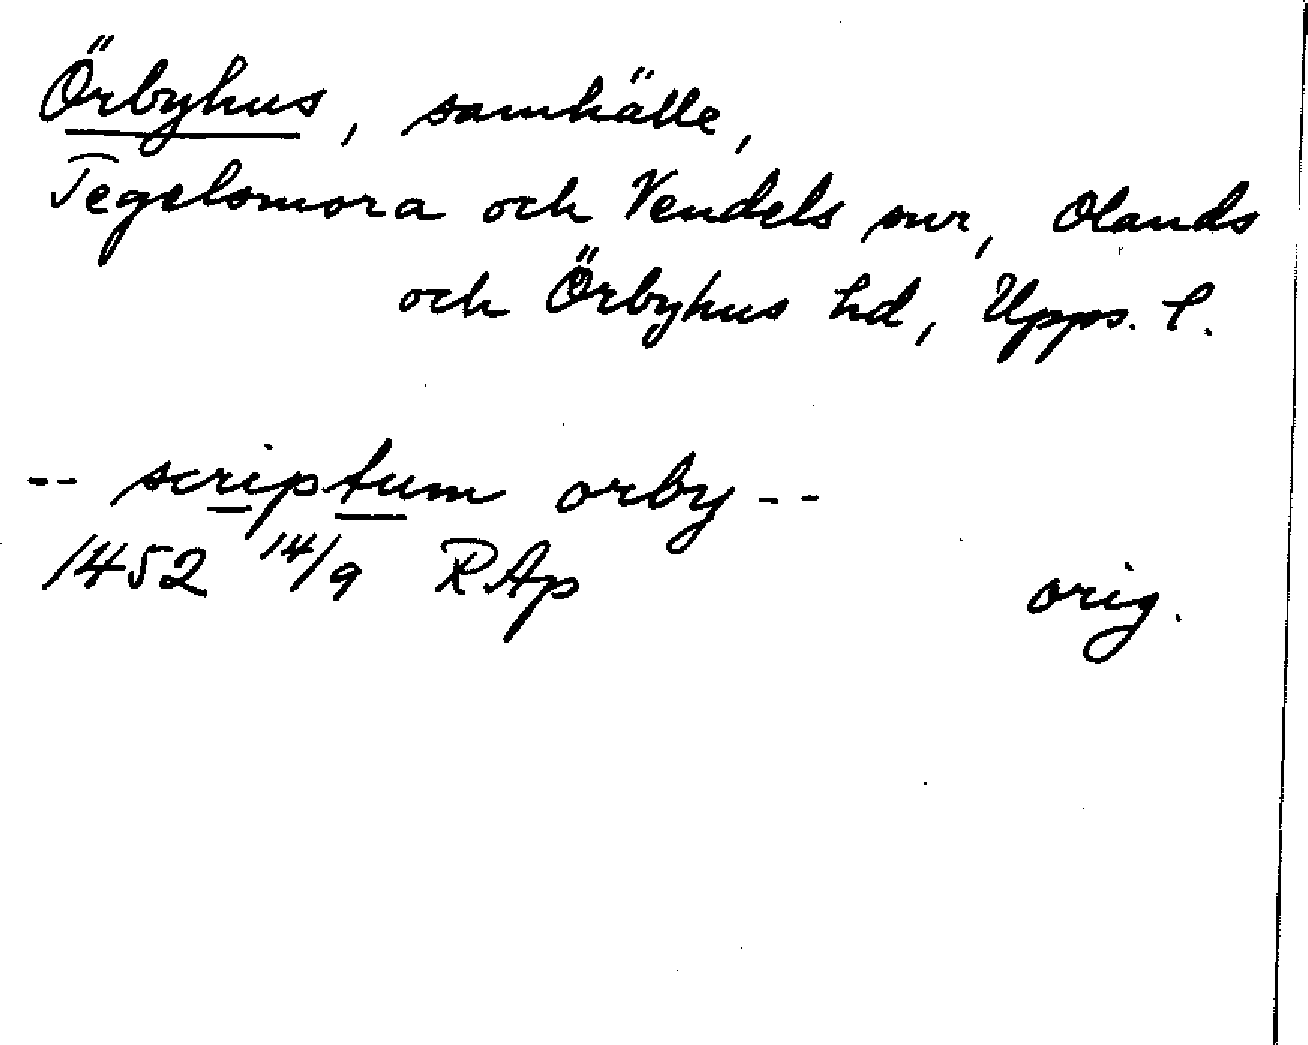 Örbyhus, samhälle,
Tegelsmora och Vendels snr, Olands
och Örbyhus hd, Upps. l.
-- scriptum orby --
1452 14/9 RAp orig.